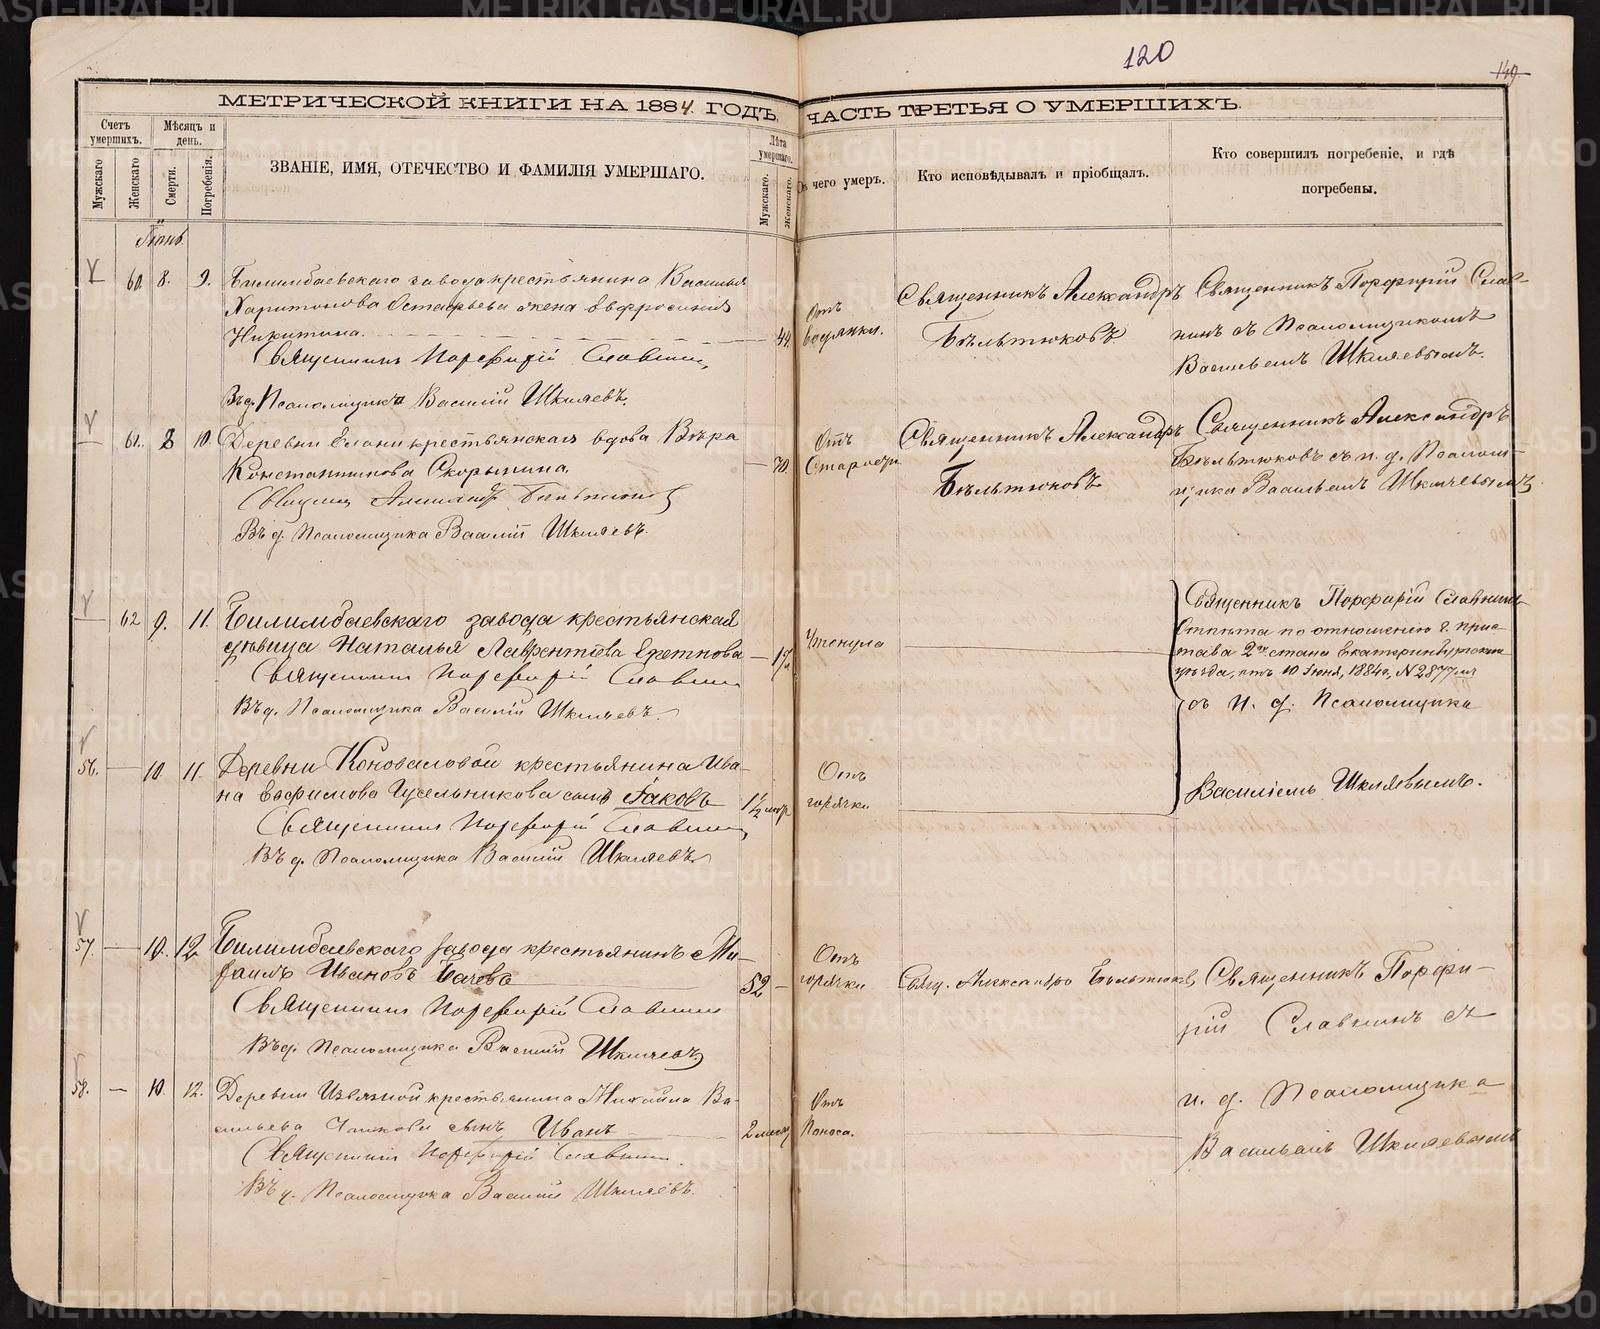 120
149
МЕТРИЧЕСКОЙ КНИГИ НА 1884 ГОДЪ, ЧАСТЬ ТРЕТЬЯ О УМЕРШИХЪ.
Счетъ умершихъ.
Мужскаго
Женскаго
Мѣсяцъ и день.
Смерти.
Погребенія.
ЗВАНІЕ, ИМЯ, ОТЕЧЕСТВО И ФАМИЛІЯ УМЕРШАГО.
Лѣта умершаго.
Мужскаго.
Женскаго.
Отъ чего умеръ.
Кто исповѣдывалъ и пріобщалъ.
Кто совершилъ погребеніе, и гдѣ
погребены.
Іюнь
60. 8. 9.
Билимбаевскаго завода крестьянина Василья
Харитонова Остафьева жена Евфросинія
Никитина.
Священникъ Порфирій Славнинъ
Въ д. Псаломщика Василій Шкляевъ.
44.
Отъ
водянки.
Священникъ Александръ
Бѣльтюковъ
Священникъ Порфирій Слав-
нинъ съ Псаломщикомъ
Васильемъ Шкляевымъ.
61. 8 10.
Деревни Елани крестьянская вдова Вѣра
Константинова Скорынина.
Священникъ Александръ Бѣльтюковъ
Въ д. Псаломщика Василій Шкляевъ.
70.
Отъ
Старости
Священникъ Александръ
Бѣльтюковъ
Священникъ Александръ
Бѣльтюковъ съ и. д. Псалом-
щика Васильемъ Шкляевымъ
62 9. 11.
Билимбаевскаго завода крестьянская
дѣвица Наталья Лаврентьева
Священникъ Порфирій Славнинъ
Въ д. Псаломщика Василій Шкляевъ.
Утонула
Священникъ Порфирій Славнинъ
Отпѣта по отношенію г. прис-
тава 2го стана Екатеринбургскаго
уѣзда, отъ 10 Іюня, 1884 г, № 2877
съ и. д. Псаломщика
Василіемъ Шкляевымъ.
56. 10. 11.
Деревни Коноваловой крестьянина Ива-
на Евфимова Гусельникова сынъ Іаковъ
Священникъ Порфирій Славнинъ
Въ д. Псаломщика Василій Шкляевъ
1½
Отъ
горячки
57. 10. 12
Билимбаевскаго завода крестьянинъ Ми-
хаилъ Ивановъ
Священникъ Порфирій Славнинъ
Въ д. Псаломщика Василій Шкляевъ
52
Отъ
горячки
Свящ. Александръ Бѣльтюковъ
Священникъ Порфи-
рій Славнинъ съ
и. д. Псаломщика
Васильемъ Шкляевымъ
58. 10. 12.
Деревни Извязной крестьянина Михаила Ва-
сильева сынъ Иванъ
Священникъ Порфирій Славнинъ
Въ д. Псаломщика Василій Шкляевъ.
2 мѣсяц
Отъ
Поноса.
METRIKI.GASO-URAL.RU